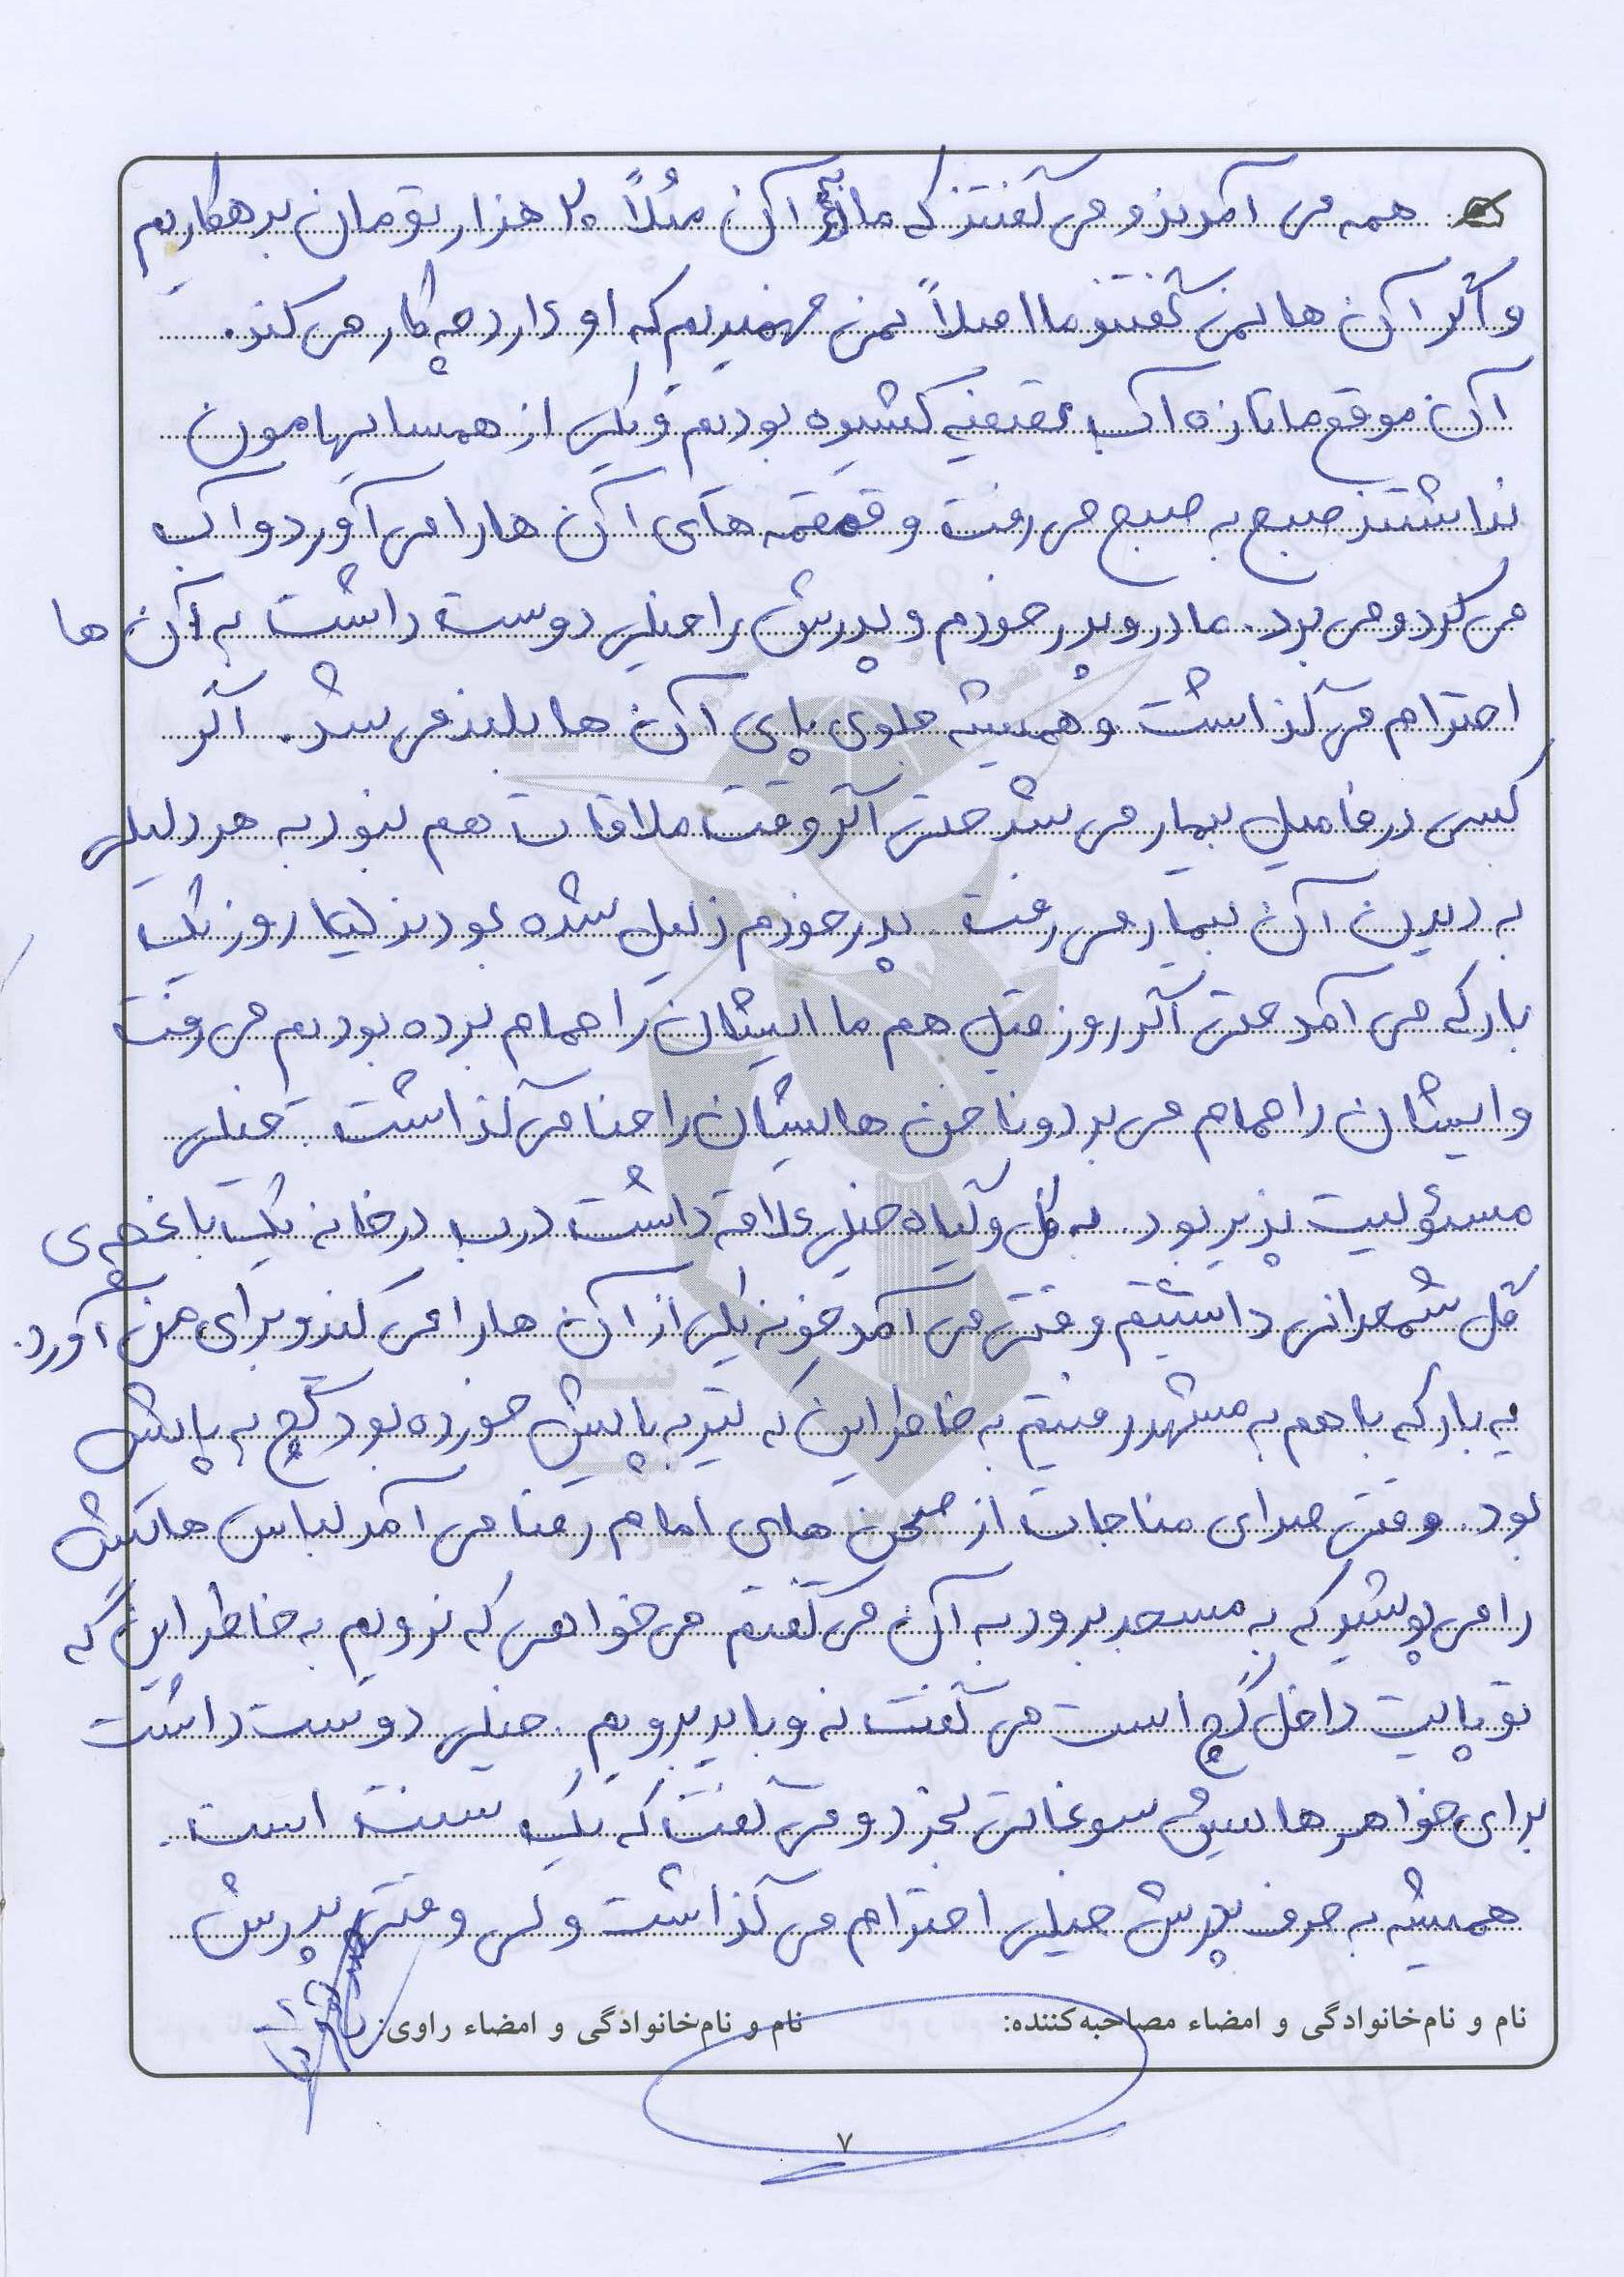 همه می آمدند و می گفتند که ما به آن مثلاً ۲۰ هزار تومان بدهکاریم
و اگر آن ها نمی گفتند ما اصلاً نمی فهمیدیم که او دارد چه کار می کند.
آن موقع ما تازه آب تصفیه کشیده بودیم و یکی از همسایهامون
نداشتند صبح به صبح می رفت و قمقمه های آن ها را می آورد و آب
می کرد و می برد. مادر و پدر خودم و پدرش را خیلی دوست داشت به آن ها
احترام می گذاشت و همیشه جلوی پای آن ها بلند می شد. اگر
کسی در فامیل بیمار می شد حتی اگر وقت ملاقات هم نبود به هر دلیلی
به دیدن آن بیمار می رفت. پدر خودم زلیل شده بودند لیکا روز یک
بار که می آمد حتی اگر روز قبل هم ما ایشان را حمام برده بودیم می رفت
و ایشان را حمام می برد و ناخن هایشان را حنا می گذاشت. خیلی
مسئولیت پذیر بود. به گل و گیاه خیلی علاقه داشت درب در خانه یک باغچه ی
گل شمعدانی داشتیم وقتی می آمد خونه یکی از آن ها را می کند و برای من می آورد.
یه بار که با هم به مشهد رفتیم به خاطر این که تیر به پایش خورده بود گچ به پایش
بود. وقتی صدای مناجات از صحن های امام رضا می آمد لباس هایش
را می پوشید که به مسجد برود به آن می گفتم می خواهی که نرویم به خاطر این که
تو پایت داخل گچ است می گفت نه و باید برویم. خیلی دوست داشت
برای خواهر هایش سوغاتی بخرد و می گفت که یک سنت است.
همیشه به حرف پدرش خیلی احترام می گذاشت ولی وقتی پدرش
نام و نام‌خانوادگی و امضاء مصاحبه‌کننده: نام و نام‌خانوادگی و امضاء راوی:
۷